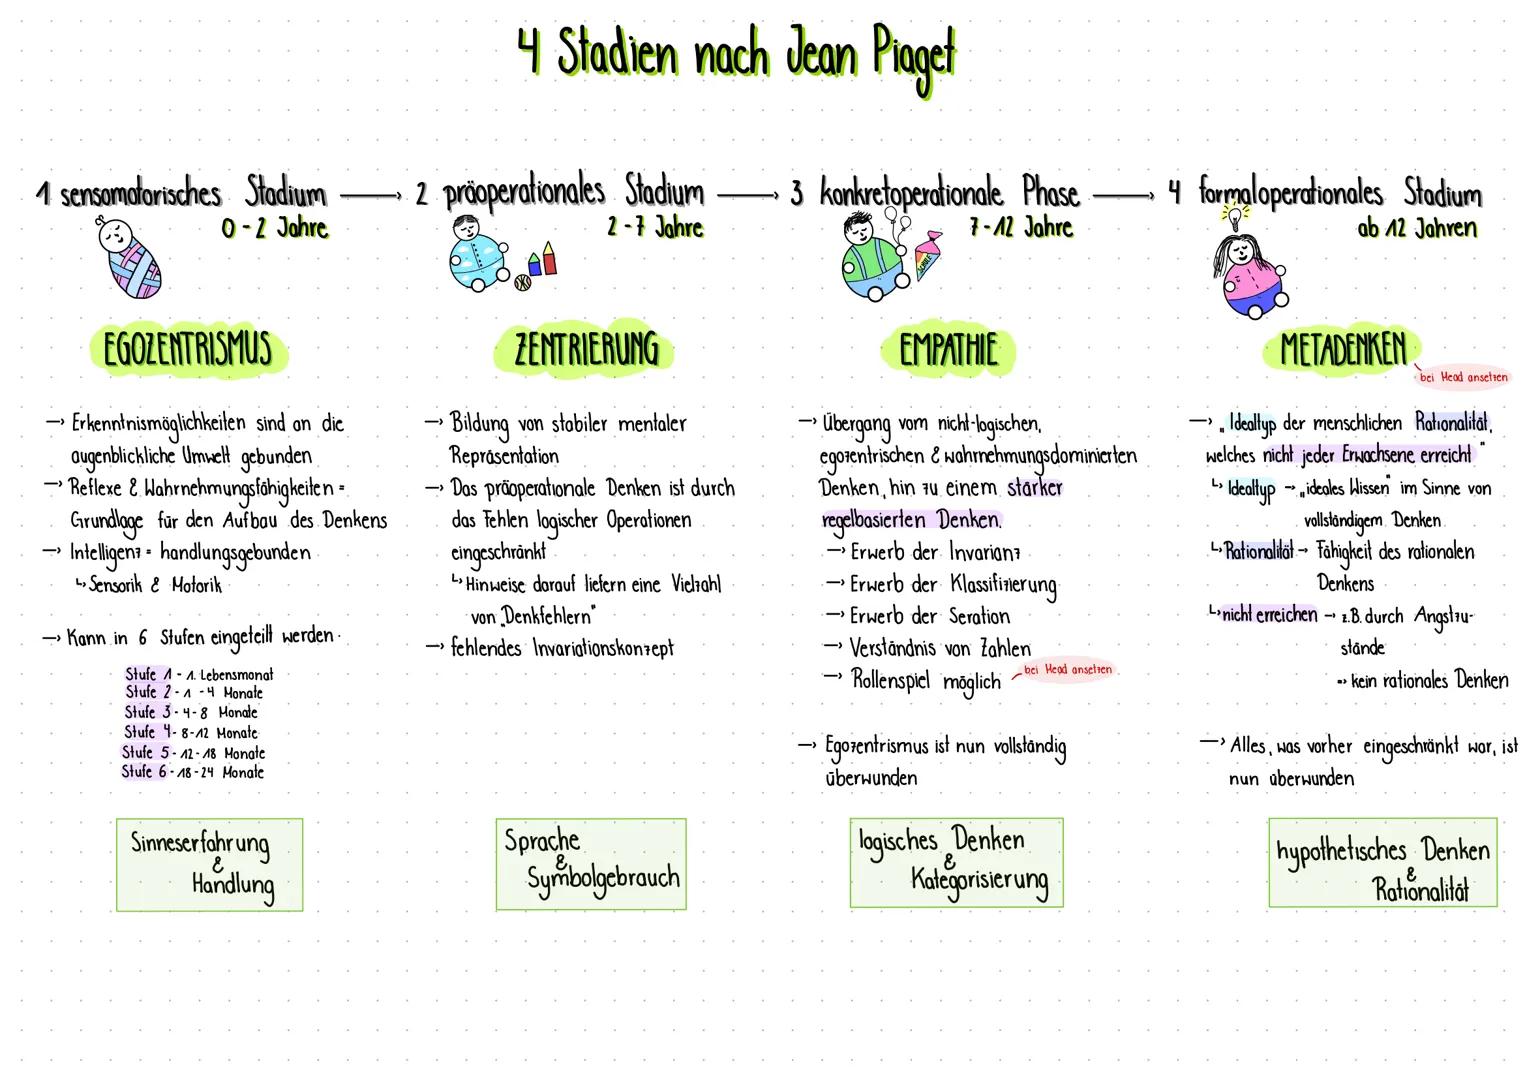 4 Stadien nach Jean Piaget
1 sensomotorisches Stadium
0-2 Jahre
EGOZENTRISMUS
→ Erkenntnismöglichkeiten sind an die
augenblickliche Umwelt gebunden
→ Reflexe & Wahrnehmungsfähigkeiten =
Grundlage für den Aufbau des Denkens
→ Intelligenz = handlungsgebunden
↳ Sensorik & Motorik
→ Kann in 6 Stufen eingeteilt werden.
Stufe 1 - 1. Lebensmonat
Stufe 2 - 1 - 4 Monate
Stufe 3 - 4-8 Monate
Stufe 4 - 8-12 Monate
Stufe 5 - 12-18 Monate
Stufe 6 - 18-24 Monate
Sinneserfahrung
&
Handlung
→ 2 präoperationales Stadium
2-7 Jahre
ZENTRIERUNG
→ Bildung von stabiler mentaler
Repräsentation
→ Das präoperationale Denken ist durch
das Fehlen logischer Operationen
eingeschränkt
↳ Hinweise darauf liefern eine Vielzahl
von „Denkfehlern"
→ fehlendes Invariationskonzept
Sprache
&
Symbolgebrauch
→ 3 konkretoperationale Phase
7-12 Jahre
SCHULE
EMPATHIE
→ Übergang vom nicht-logischen,
egozentrischen & wahrnehmungsdominierten
Denken, hin zu einem stärker
regelbasierten Denken.
→ Erwerb der Invarianz
→ Erwerb der Klassifizierung
→ Erwerb der Seration
→ Verständnis von Zahlen
→ Rollenspiel möglich
bei Head ansetzen
→ Egozentrismus ist nun vollständig
überwunden
logisches Denken
&
Kategorisierung
→ 4 formaloperationales Stadium
ab 12 Jahren
METADENKEN
bei Head ansetzen
→ „Idealtyp der menschlichen Rationalität,
welches nicht jeder Erwachsene erreicht"
↳ Idealtyp → „ideales Wissen" im Sinne von
vollständigem Denken
↳ Rationalität → Fähigkeit des rationalen
Denkens
↳ nicht erreichen → z.B. durch Angstzu-
stände
=> kein rationales Denken
→ Alles, was vorher eingeschränkt war, ist
nun überwunden
hypothetisches Denken
&
Rationalität